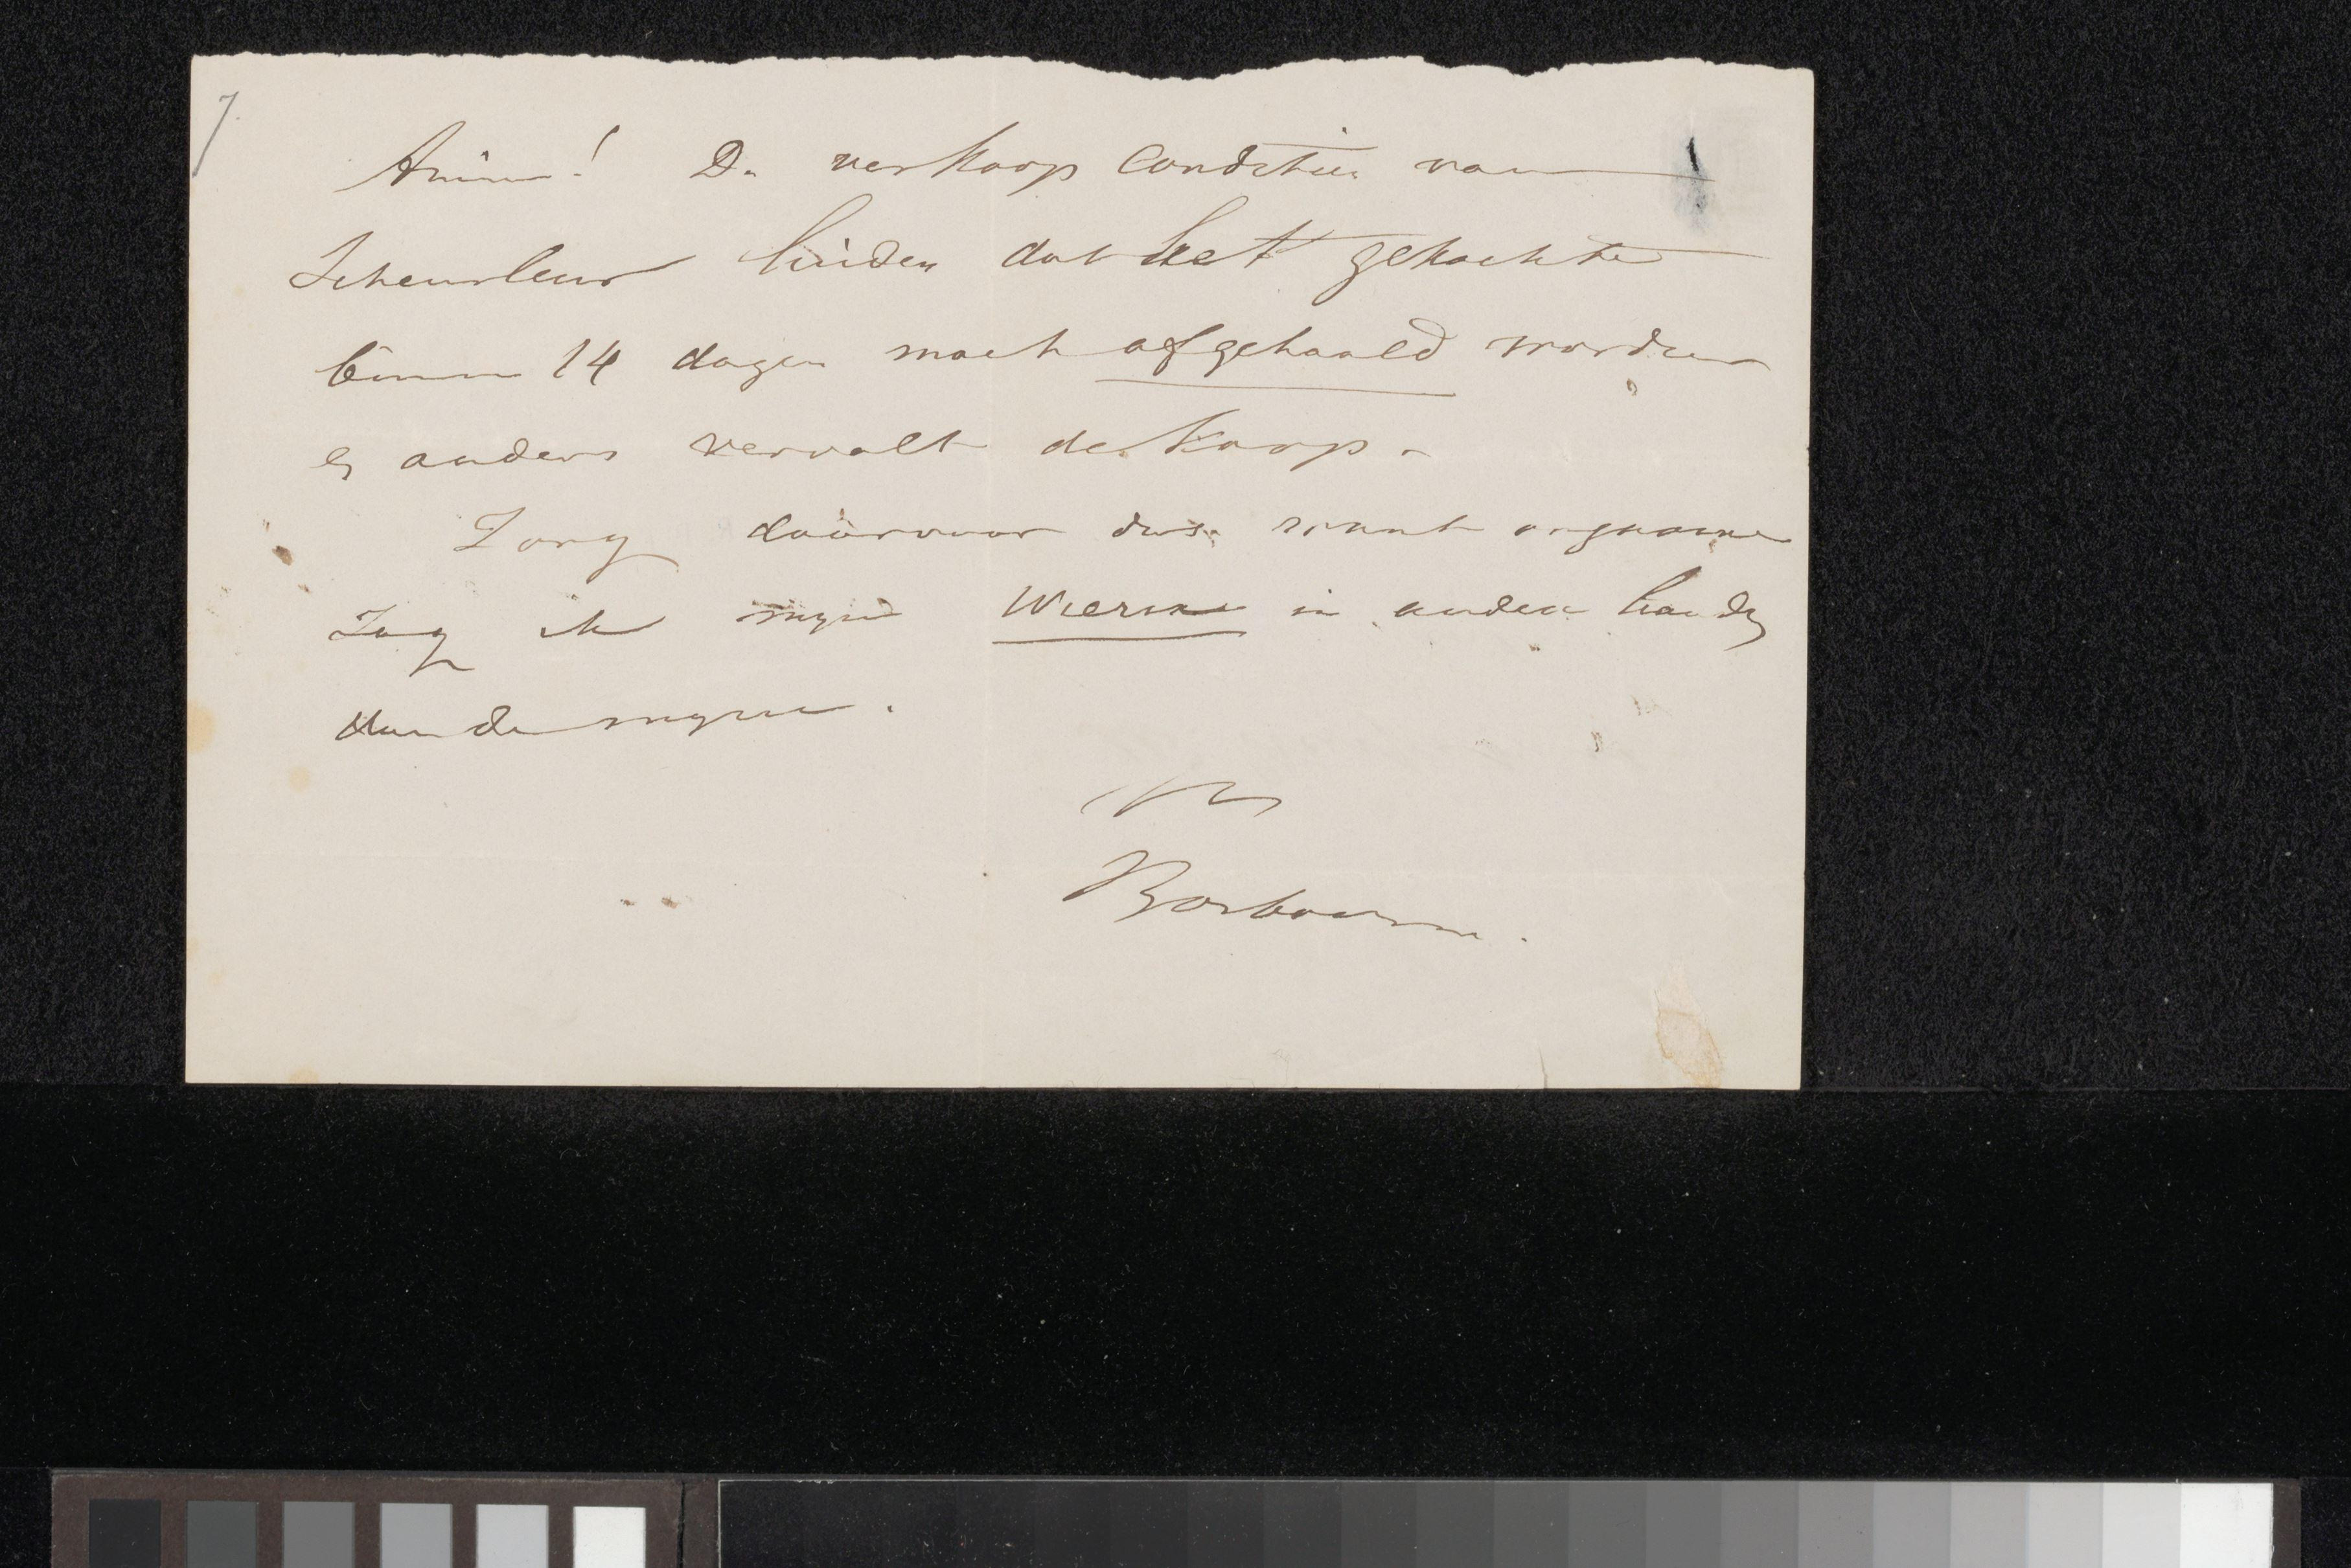 7.
Amice! De verkoop conditien van
Scheurleer luiden dat het gekochte
binnen 14 dagen moet afgehaald worden
en anders vervalt de koop.
Zorg daarvoor dus want ongaarne
zag ik mijn Wierix in andere handen
dan de mijne.
Bosboom.